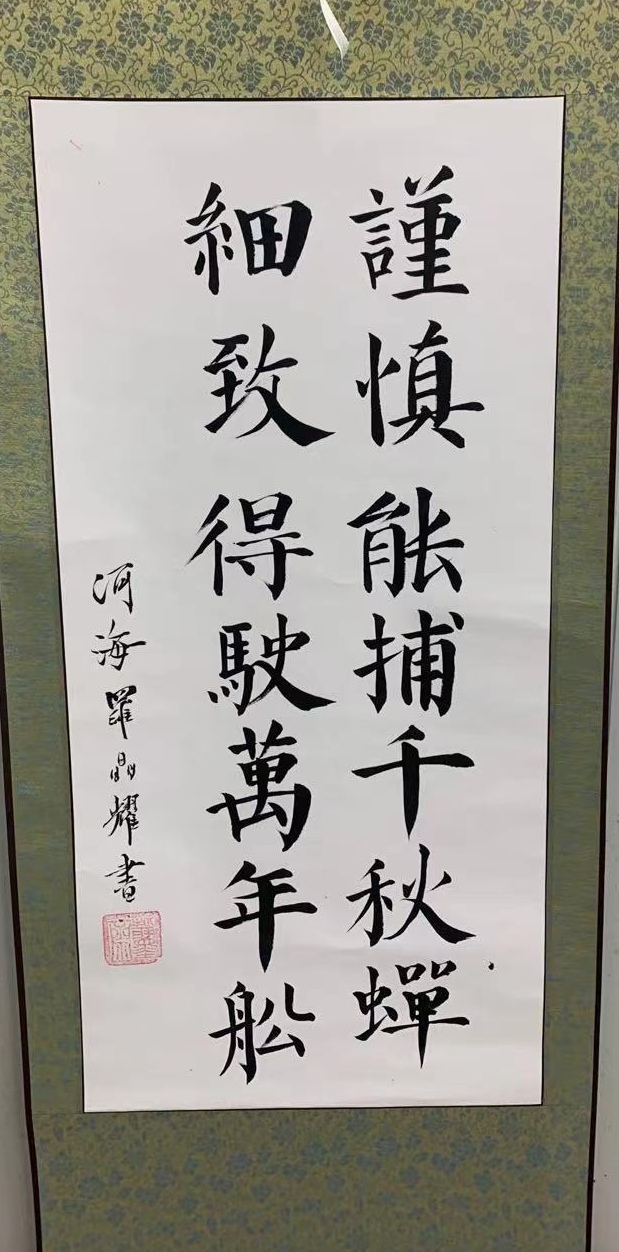 謹慎能捕千秋蟬
細致得駛萬年舩
河海羅晶耀書